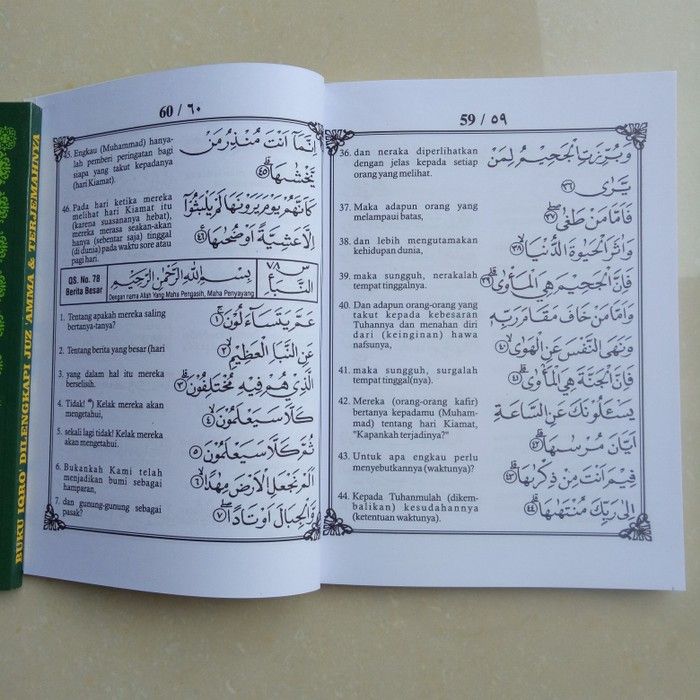 BUKU IQRO' DILENGKAPI JUZ 'AMMA & TERJEMAHNYA
59 / ٥٩
36. dan neraka diperlihatkan
dengan jelas kepada setiap
orang yang melihat.
وَبُرِّزَتِ الْجَحِيمُ لِمَنْ
يَّرٰى ٣٦
37. Maka adapun orang yang
melampaui batas,
فَاَمَّا مَنْ طَغٰى ٣٧
38. dan lebih mengutamakan
kehidupan dunia,
وَاٰثَرَ الْحَيٰوةَ الدُّنْيَا ٣٨
39. maka sungguh, nerakalah
tempat tinggalnya.
فَاِنَّ الْجَحِيْمَ هِيَ الْمَأْوٰى ٣٩
40. Dan adapun orang-orang yang
takut kepada kebesaran
Tuhannya dan menahan diri
dari (keinginan) hawa
nafsunya,
وَاَمَّا مَنْ خَافَ مَقَامَ رَبِّهٖ
وَنَهَى النَّفْسَ عَنِ الْهَوٰى ٤٠
41. maka sungguh, surgalah
tempat tinggal(nya).
فَاِنَّ الْجَنَّةَ هِيَ الْمَأْوٰى ٤١
42. Mereka (orang-orang kafir)
bertanya kepadamu (Muham-
mad) tentang hari Kiamat,
"Kapankah terjadinya?"
يَسْـَٔلُوْنَكَ عَنِ السَّاعَةِ
اَيَّانَ مُرْسٰىهَا ٤٢
43. Untuk apa engkau perlu
menyebutkannya (waktunya)?
فِيْمَ اَنْتَ مِنْ ذِكْرٰىهَا ٤٣
44. Kepada Tuhanmulah (dikem-
balikan) kesudahannya
(ketentuan waktunya).
اِلٰى رَبِّكَ مُنْتَهٰىهَا ٤٤
60 / ٦٠
45. Engkau (Muhammad) hanya-
lah pemberi peringatan bagi
siapa yang takut kepadanya
(hari Kiamat).
اِنَّمَآ اَنْتَ مُنْذِرُ مَنْ
يَّخْشٰىهَا ٤٥
46. Pada hari ketika mereka
melihat hari Kiamat itu
(karena suasananya hebat),
mereka merasa seakan-akan
hanya (sebentar saja) tinggal
(di dunia) pada waktu sore atau
pagi hari.
كَاَنَّهُمْ يَوْمَ يَرَوْنَهَا لَمْ يَلْبَثُوْٓا
اِلَّا عَشِيَّةً اَوْ ضُحٰىهَا ٤٦
QS. No. 78
Berita Besar
بِسْمِ اللّٰهِ الرَّحْمٰنِ الرَّحِيْمِ
Dengan nama Allah Yang Maha Pengasih, Maha Penyayang
س ٧٨
النَّبَأ
1. Tentang apakah mereka saling
bertanya-tanya?
عَمَّ يَتَسَآءَلُوْنَ ١
2. Tentang berita yang besar (hari
عَنِ النَّبَاِ الْعَظِيْمِ ٢
3. yang dalam hal itu mereka
berselisih.
الَّذِيْ هُمْ فِيْهِ مُخْتَلِفُوْنَ ٣
4. Tidak! *) Kelak mereka akan
mengetahui,
كَلَّا سَيَعْلَمُوْنَ ٤
5. sekali lagi tidak! Kelak mereka
akan mengetahui.
ثُمَّ كَلَّا سَيَعْلَمُوْنَ ٥
6. Bukankah Kami telah
menjadikan bumi sebagai
hamparan,
اَلَمْ نَجْعَلِ الْاَرْضَ مِهٰدًا ٦
7. dan gunung-gunung sebagai
pasak?
وَّالْجِبَالَ اَوْتَادًا ٧